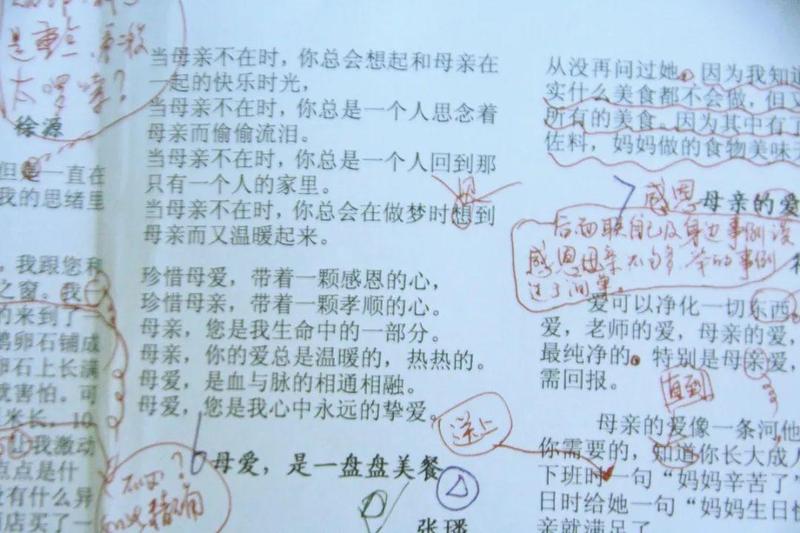 是重点,
太啰嗦?
徐源
一直在
我的思绪里
我跟您和
之窗。我一
的来到了
鹅卵石铺成
卵石上长满
就害怕。可
米长,10
我激动
点点是什
没有什么异
店买了一
当母亲不在时,你总会想起和母亲在
一起的快乐时光,
当母亲不在时,你总是一个人思念着
母亲而偷偷流泪。
当母亲不在时,你总是一个人回到那
只有一个人的家里。
当母亲不在时,你总会在做梦时想到
母亲而又温暖起来。
珍惜母爱,带着一颗感恩的心,
珍惜母亲,带着一颗孝顺的心。
母亲,您是我生命中的一部分。
母亲,你的爱总是温暖的,热热的。
母爱,是血与脉的相通相融。
母爱,您是我心中永远的挚爱。
送上
6
母爱,是一盘盘美餐
张璠
从没再问过她。因为我知道
实什么美食都不会做,但又
所有的美食。因为其中有了
佐料,妈妈做的食物美味无
7
感恩
母亲的爱
后面联自己及身边事例谈
感恩母亲
的事例
过于简单。
爱可以净化一切东西
爱,老师的爱,母亲的爱,
最纯净的。特别是母亲爱,
需回报。
直到
母亲的爱像一条河,他
你需要的,知道你长大成人
下班时一句“妈妈辛苦了”
日时给她一句“妈妈生日快
亲就满足了